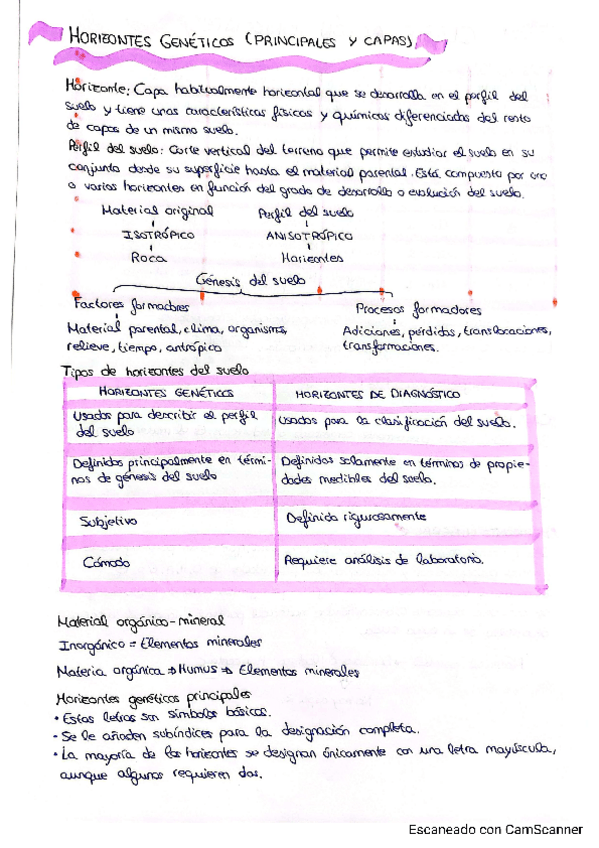 HORIZONTES GENÉTICOS (PRINCIPALES Y CAPAS)
Horizonte: Capa habitualmente horizontal que se desarrolla en el perfil del
suelo y tiene unas características físicas y químicas diferenciadas del resto
de capas de un mismo suelo.
Perfil del suelo: Corte vertical del terreno que permite estudiar el suelo en su
conjunto desde su superficie hasta el material parental. Está compuesto por uno
o varios horizontes en función del grado de desarrollo o evolución del suelo.
Material original Perfil del suelo
ISOTRÓPICO ANISOTRÓPICO
Roca Horizontes
Génesis del suelo
Factores formadores Procesos formadores
Material parental, clima, organismos, Adiciones, pérdidas, translocaciones,
relieve, tiempo, antrópico transformaciones.
Tipos de horizontes del suelo
HORIZONTES GENÉTICOS HORIZONTES DE DIAGNÓSTICO
Usados para describir el perfil Usados para la clasificación del suelo.
del suelo
Definidos principalmente en térmi- Definidos solamente en términos de propie-
nos de génesis del suelo dades medibles del suelo.
Subjetivo Definido rigurosamente
Cómodo Requiere análisis de laboratorio.
Material orgánico-mineral
Inorgánico = Elementos minerales
Materia orgánica → Humus → Elementos minerales
Horizontes genéticos principales
• Estas letras son símbolos básicos.
• Se le añaden subíndices para la designación completa.
• La mayoría de los horizontes se designan únicamente con una letra mayúscula,
aunque algunos requieren dos.
Escaneado con CamScanner